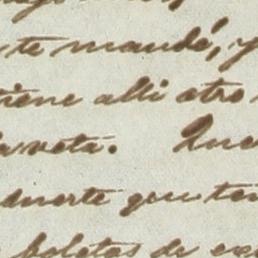 te mandé, y
tiene alli otro
veta. Que
duerte que ten
boletas de